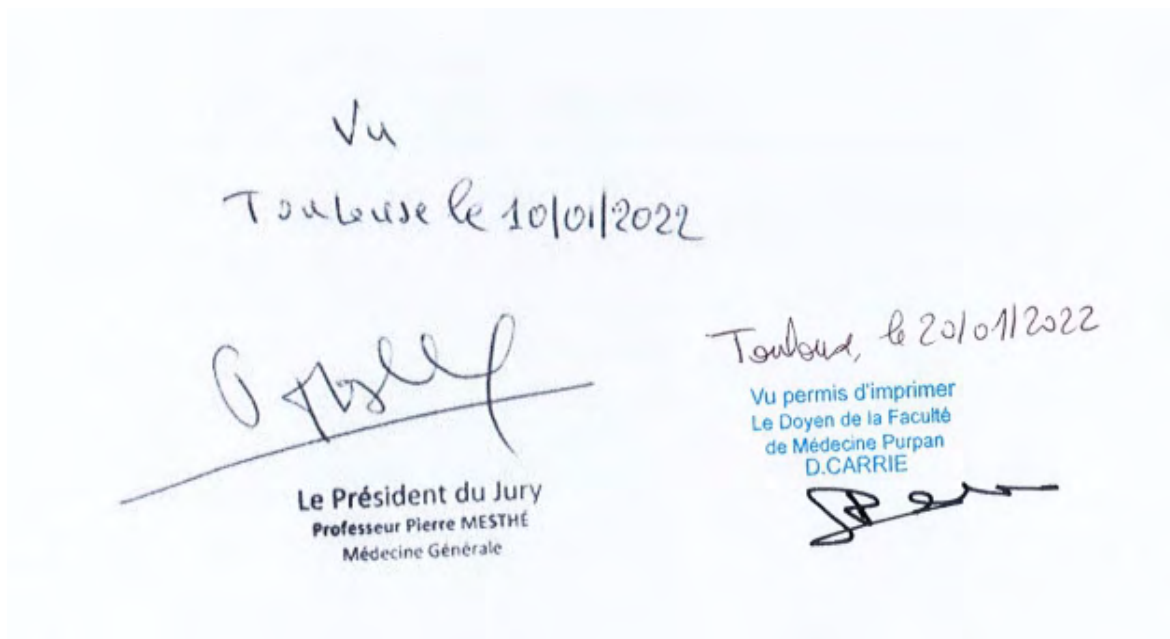 Vu
Toulouse le 10/01/2022
Le Président du Jury
Professeur Pierre MESTHÉ
Médecine Générale
Toulouse, le 20/01/2022
Vu permis d'imprimer
Le Doyen de la Faculté
de Médecine Purpan
D.CARRIE